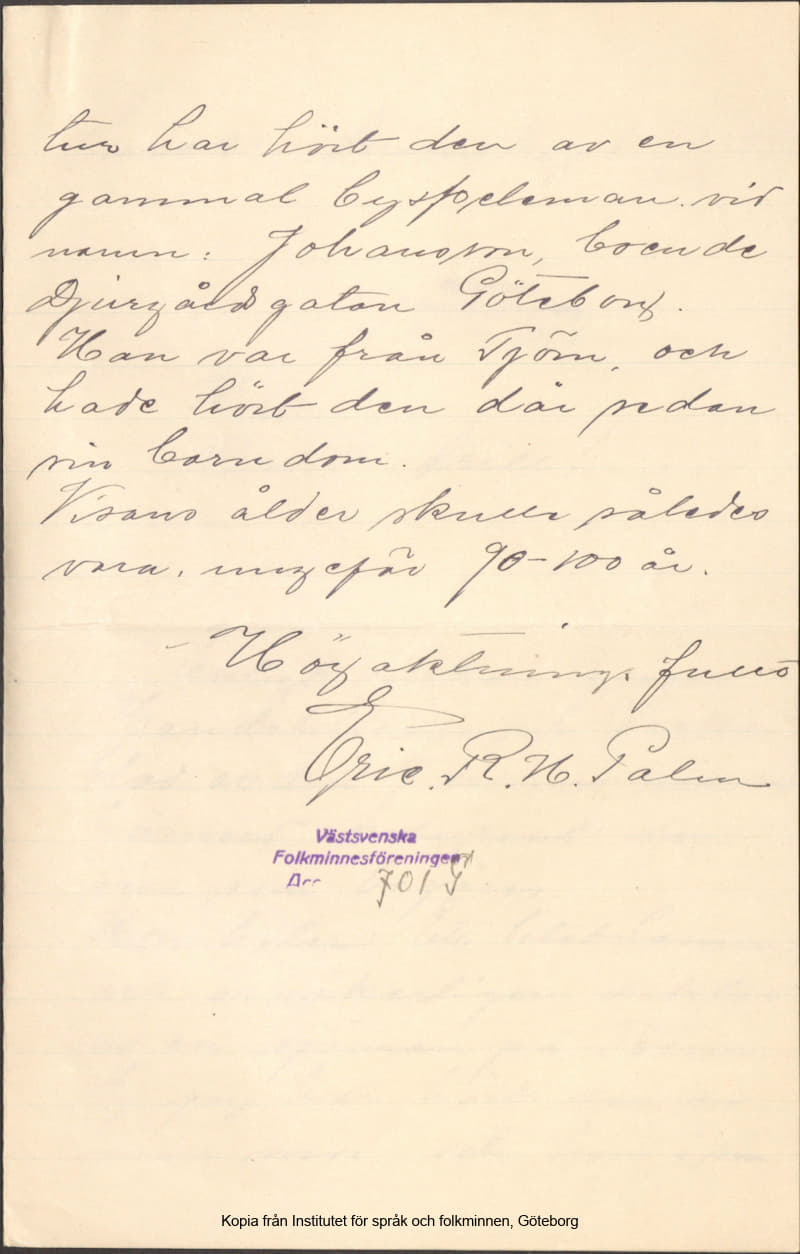 tur har hört den av en
gammal byspeleman vid
namn: Johansson, boende
Djurgårdsgatan Göteborg.
Han var från Tjörn, och
hade hört den där sedan
sin barndom.
Visans ålder skulle således
vara, ungefär 90-100 år.
Högaktningsfullt
Eric. R. H. Palm
Västsvenska
Folkminnesföreningen
701
Kopia från Institutet för språk och folkminnen, Göteborg